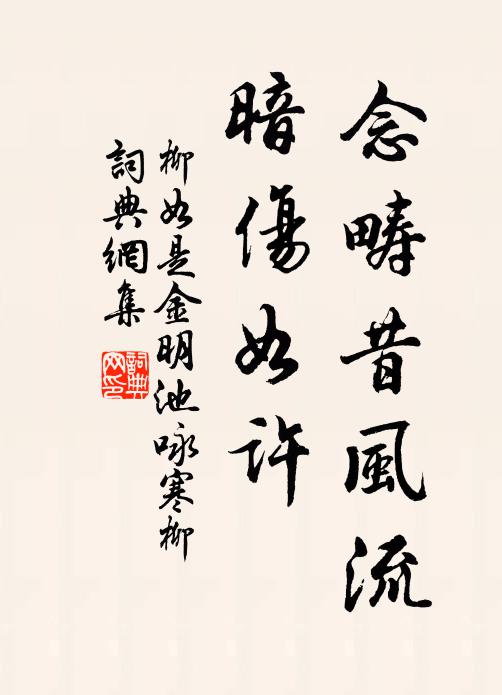 念疇昔風流
暗傷如許
柳如是金明池咏寒柳
詞典網集
詞典
网印